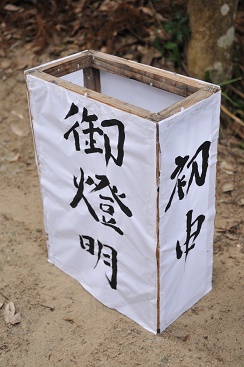 御燈明
初申